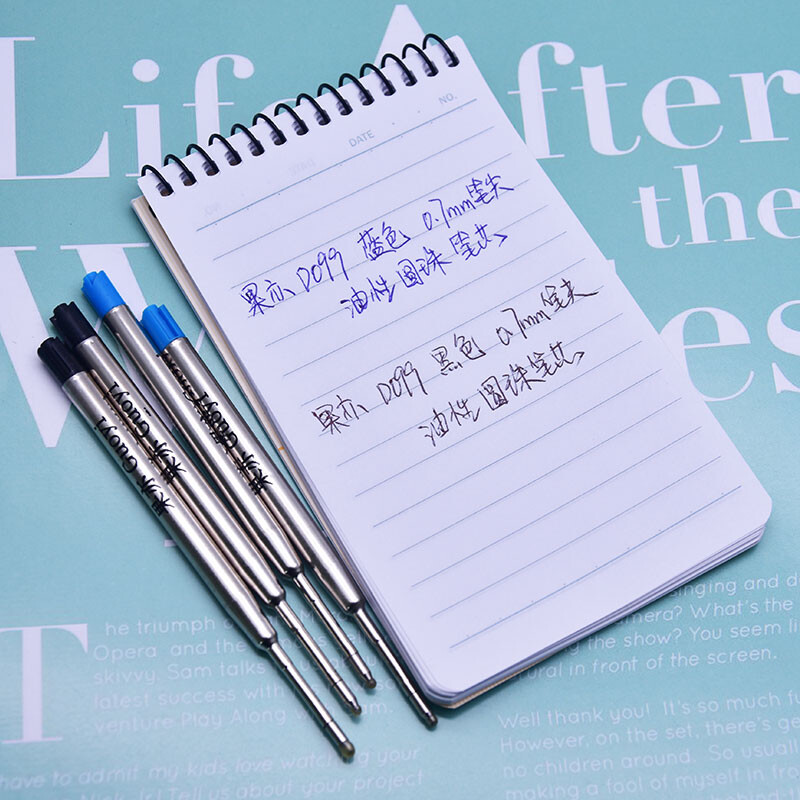 Life After
the
DATE
NO.
果亦 D099 蓝色 0.7mm笔尖
油性圆珠笔芯
果亦 D099 黑色 0.7mm笔尖
油性圆珠笔芯
果亦 Guoyi
果亦 Guoyi
果亦 Guoyi
T
he triumph o
Opera and the
skivvy. Sam talks
latest success with
venture Play Along w
am.
have to admit my kids love watching your
Tell us about your project
singing and d
camera? What's the
g the show? You seem li
tural in front of the screen.
Well thank you! It's so much fu
However, on the set, there's ge
no children around. So usual
making a fool of myself in fro